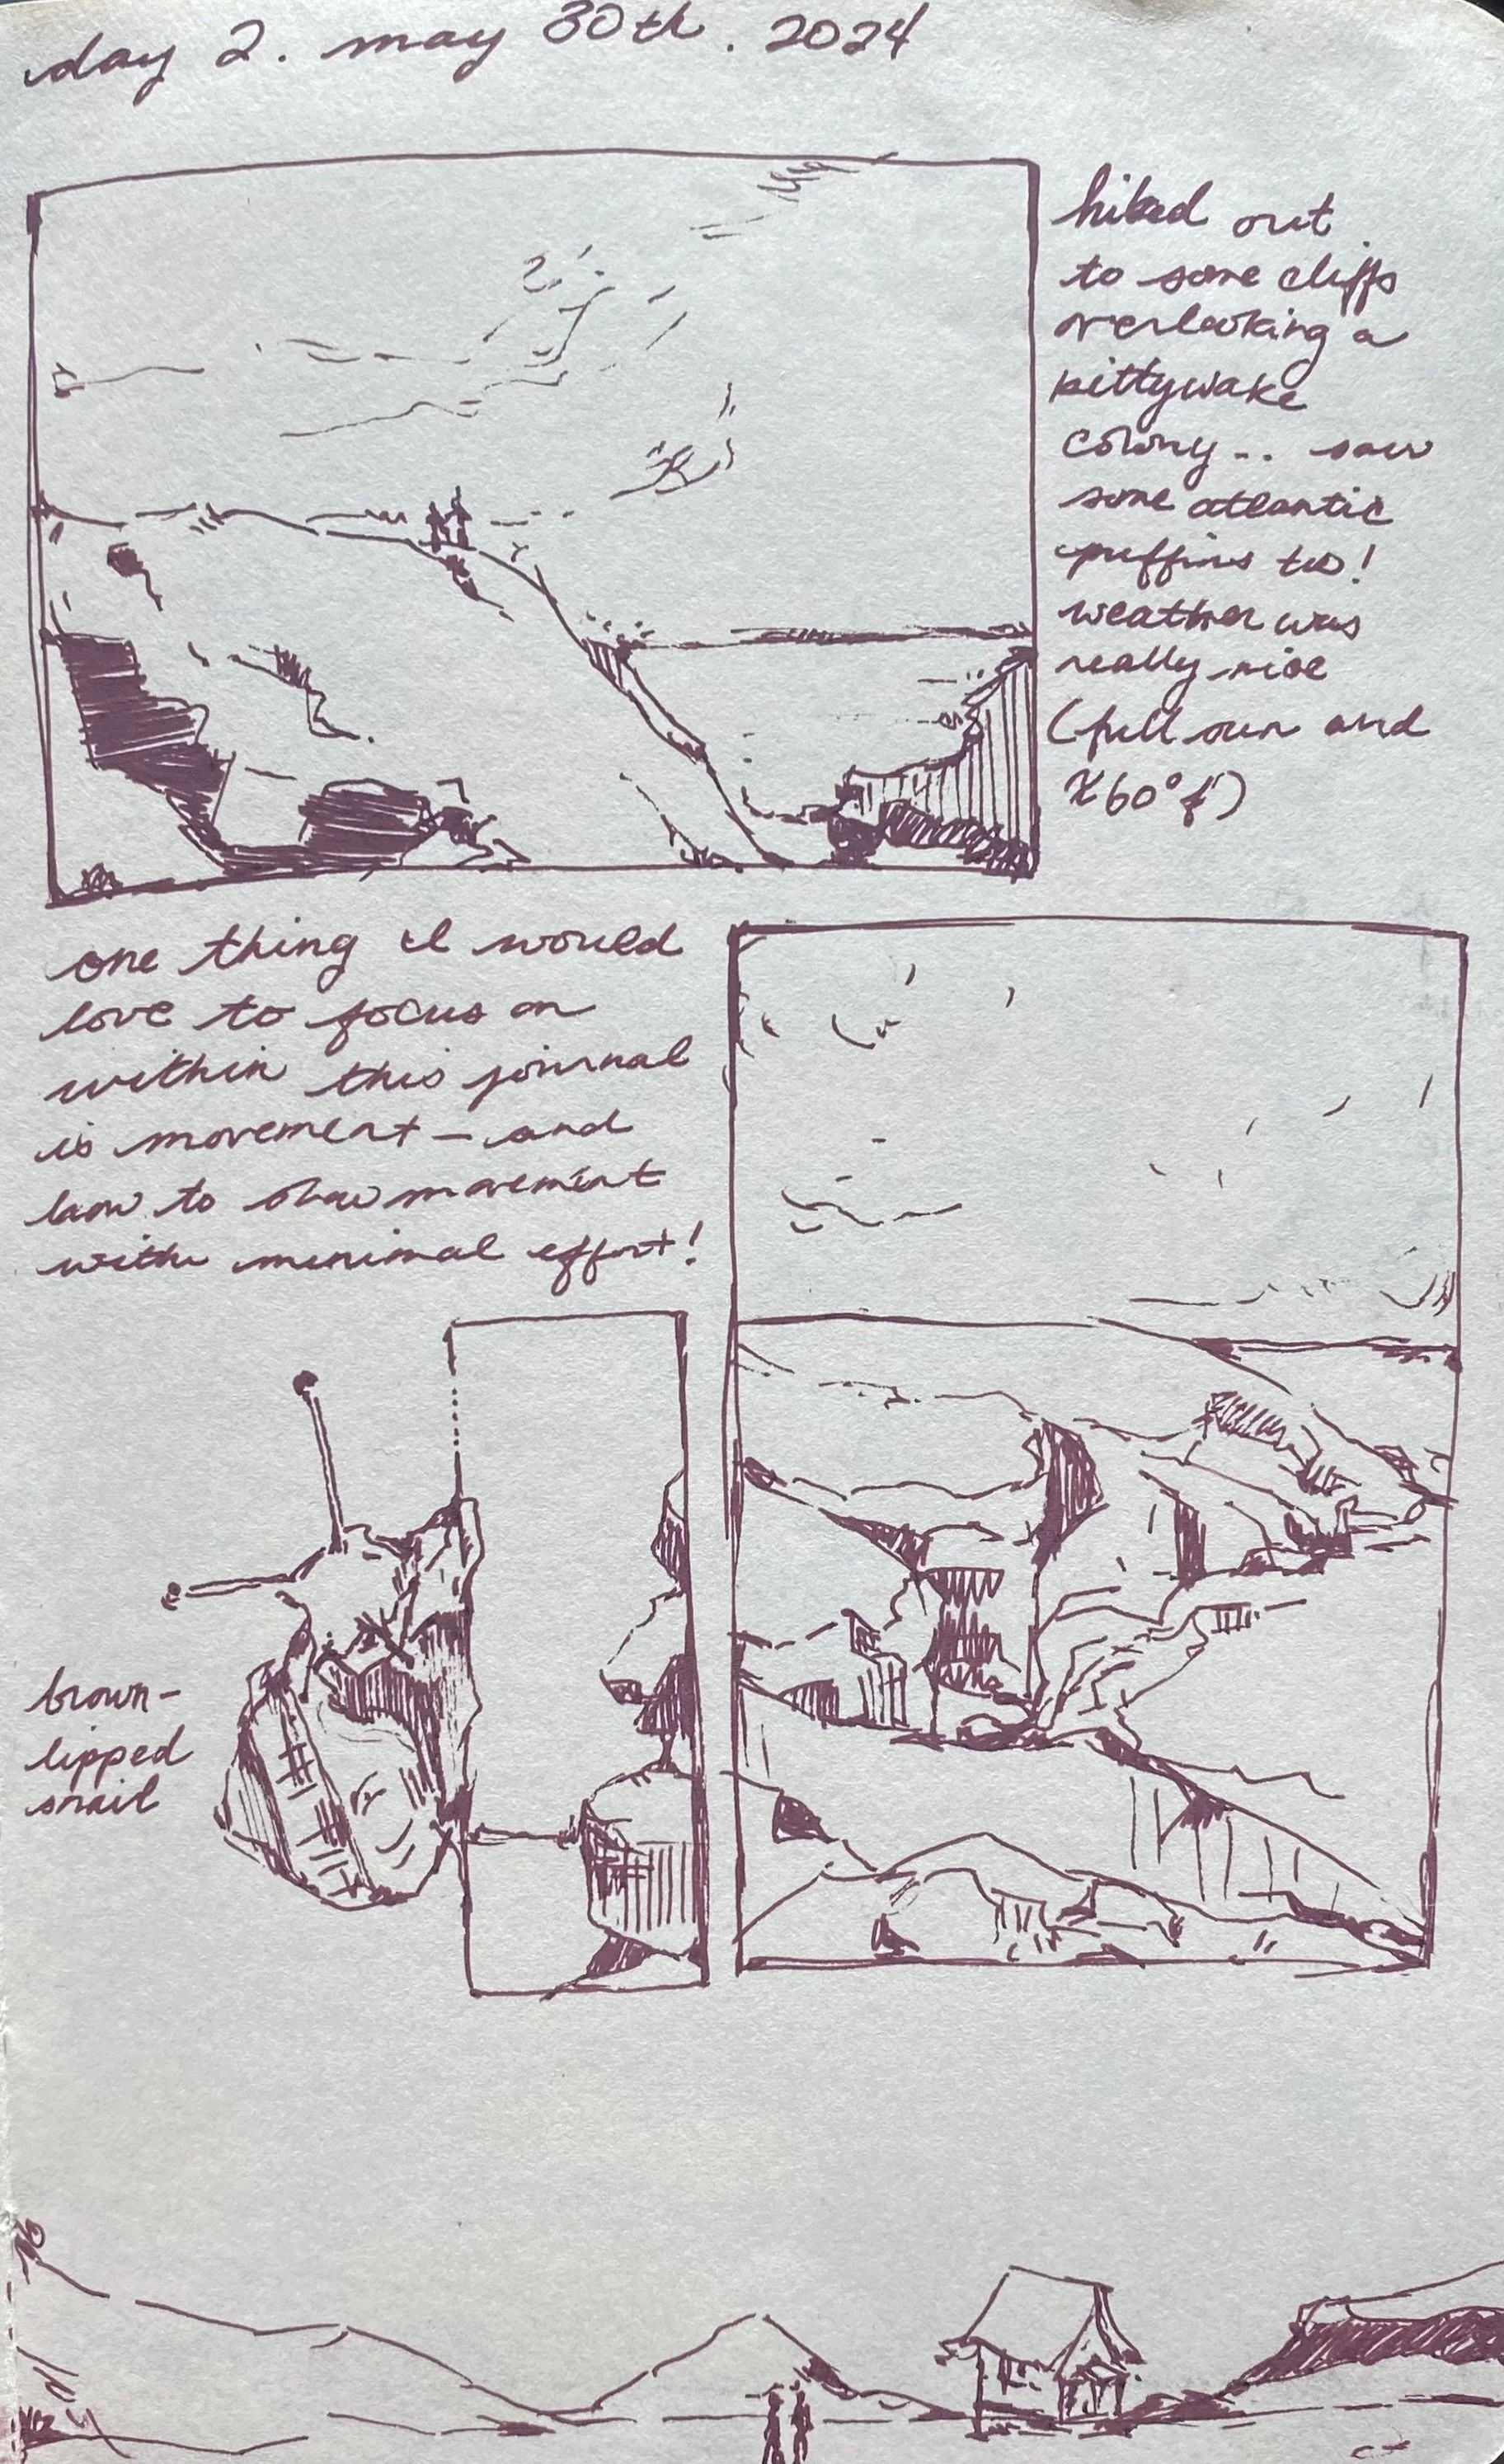 day 2. may 30th. 2024
hiked out
to some cliffs
overlooking a
kittywake
colony.. saw
some atlantic
puffins too!
weather was
really nice
(full sun and
≈60°f)
one thing I would
love to focus on
within this journal
is movement - and
how to show movement
with minimal effort!
brown-
lipped
snail